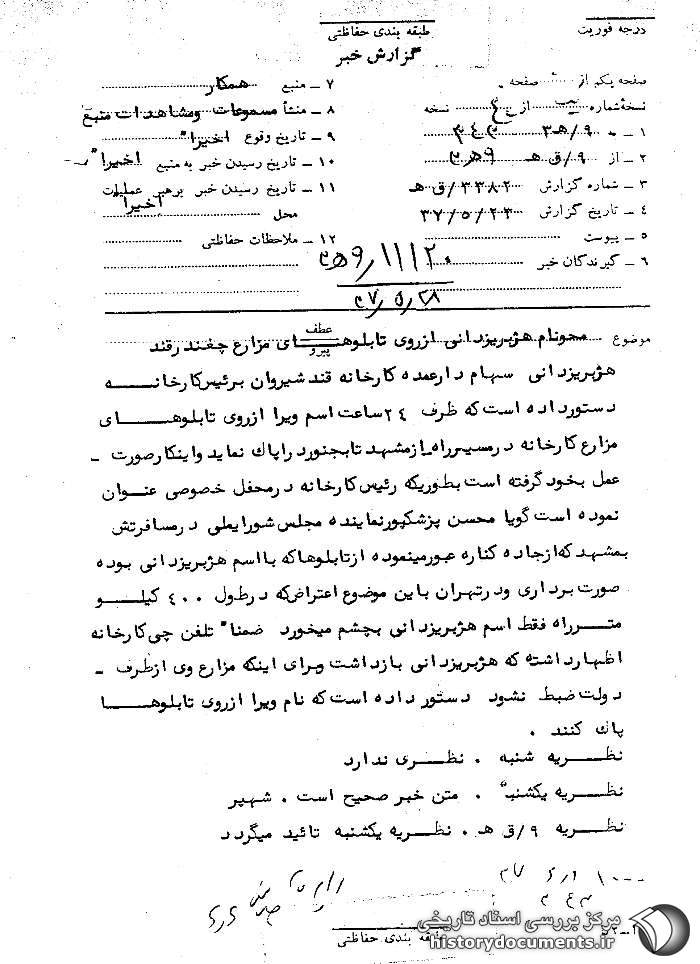 درجه فوریت
طبقه بندی حفاظتی
گزارش خبر
صفحه یکم از صفحه
نسخه شماره از نسخه
۱ ـ به ۹/هـ۳ ۳۴۳
۲ ـ از ۹/ق هـ
۳ ـ شماره گزارش ۳۳۸۲/ق هـ
۴ ـ تاریخ گزارش ۳۷/۵/۲۳
۵ ـ پیوست
۶ ـ گیرندگان خبر
۷ ـ منبع همکار
۸ ـ منشأ مسموعات ومشاهدات منبع
۹ ـ تاریخ وقوع اخیرا"
۱۰ ـ تاریخ رسیدن خبر به منبع اخیرا"
۱۱ ـ تاریخ رسیدن خبر برهبر عملیات
محل اخیرا"
۱۲ ـ ملاحظات حفاظتی
عطف
پیرو
موضوع محونام هژبریزدانی ازروی تابلوهای مزارع چغندرقند
هژبریزدانی سهام دارعمده کارخانه قند شیروان برئیس کارخانه
دستورداده است که ظرف ۲۴ساعت اسم ویرا ازروی تابلوهای
مزارع کارخانه درمسیرراه ازمشهد تابجنورد راپاک نماید واینکارصورت ـ
عمل بخود گرفته است بطوریکه رئیس کارخانه درمحفل خصوصی عنوان
نموده است گویا محسن پزشکپورنماینده مجلس شورایملی درمسافرتش
بمشهد که ازجاده کناره عبورمینموده ازتابلوهاکه بااسم هژبریزدانی بوده
صورت برداری ودرتهران باین موضوع اعتراض که درطول ۴۰۰ کیلو
متر راه فقط اسم هژبریزدانی بچشم میخورد ضمنا" تلفن چی کارخانه
اظهارداشته که هژبریزدانی بازداشت وبرای اینکه مزارع وی ازطرف ـ
دولت ضبط نشود دستور داده است که نام ویرا ازروی تابلوها
پاک کنند .
نظریه شنبه . نظری ندارد
نظریه یکشنبه . متن خبر صحیح است . شهپر
نظریه ۹/ق هـ . نظریه یکشنبه تائید میگردد
۳۴۳
طبقه بندی حفاظتی
مرکز بررسی اسناد تاریخی
historydocuments.ir